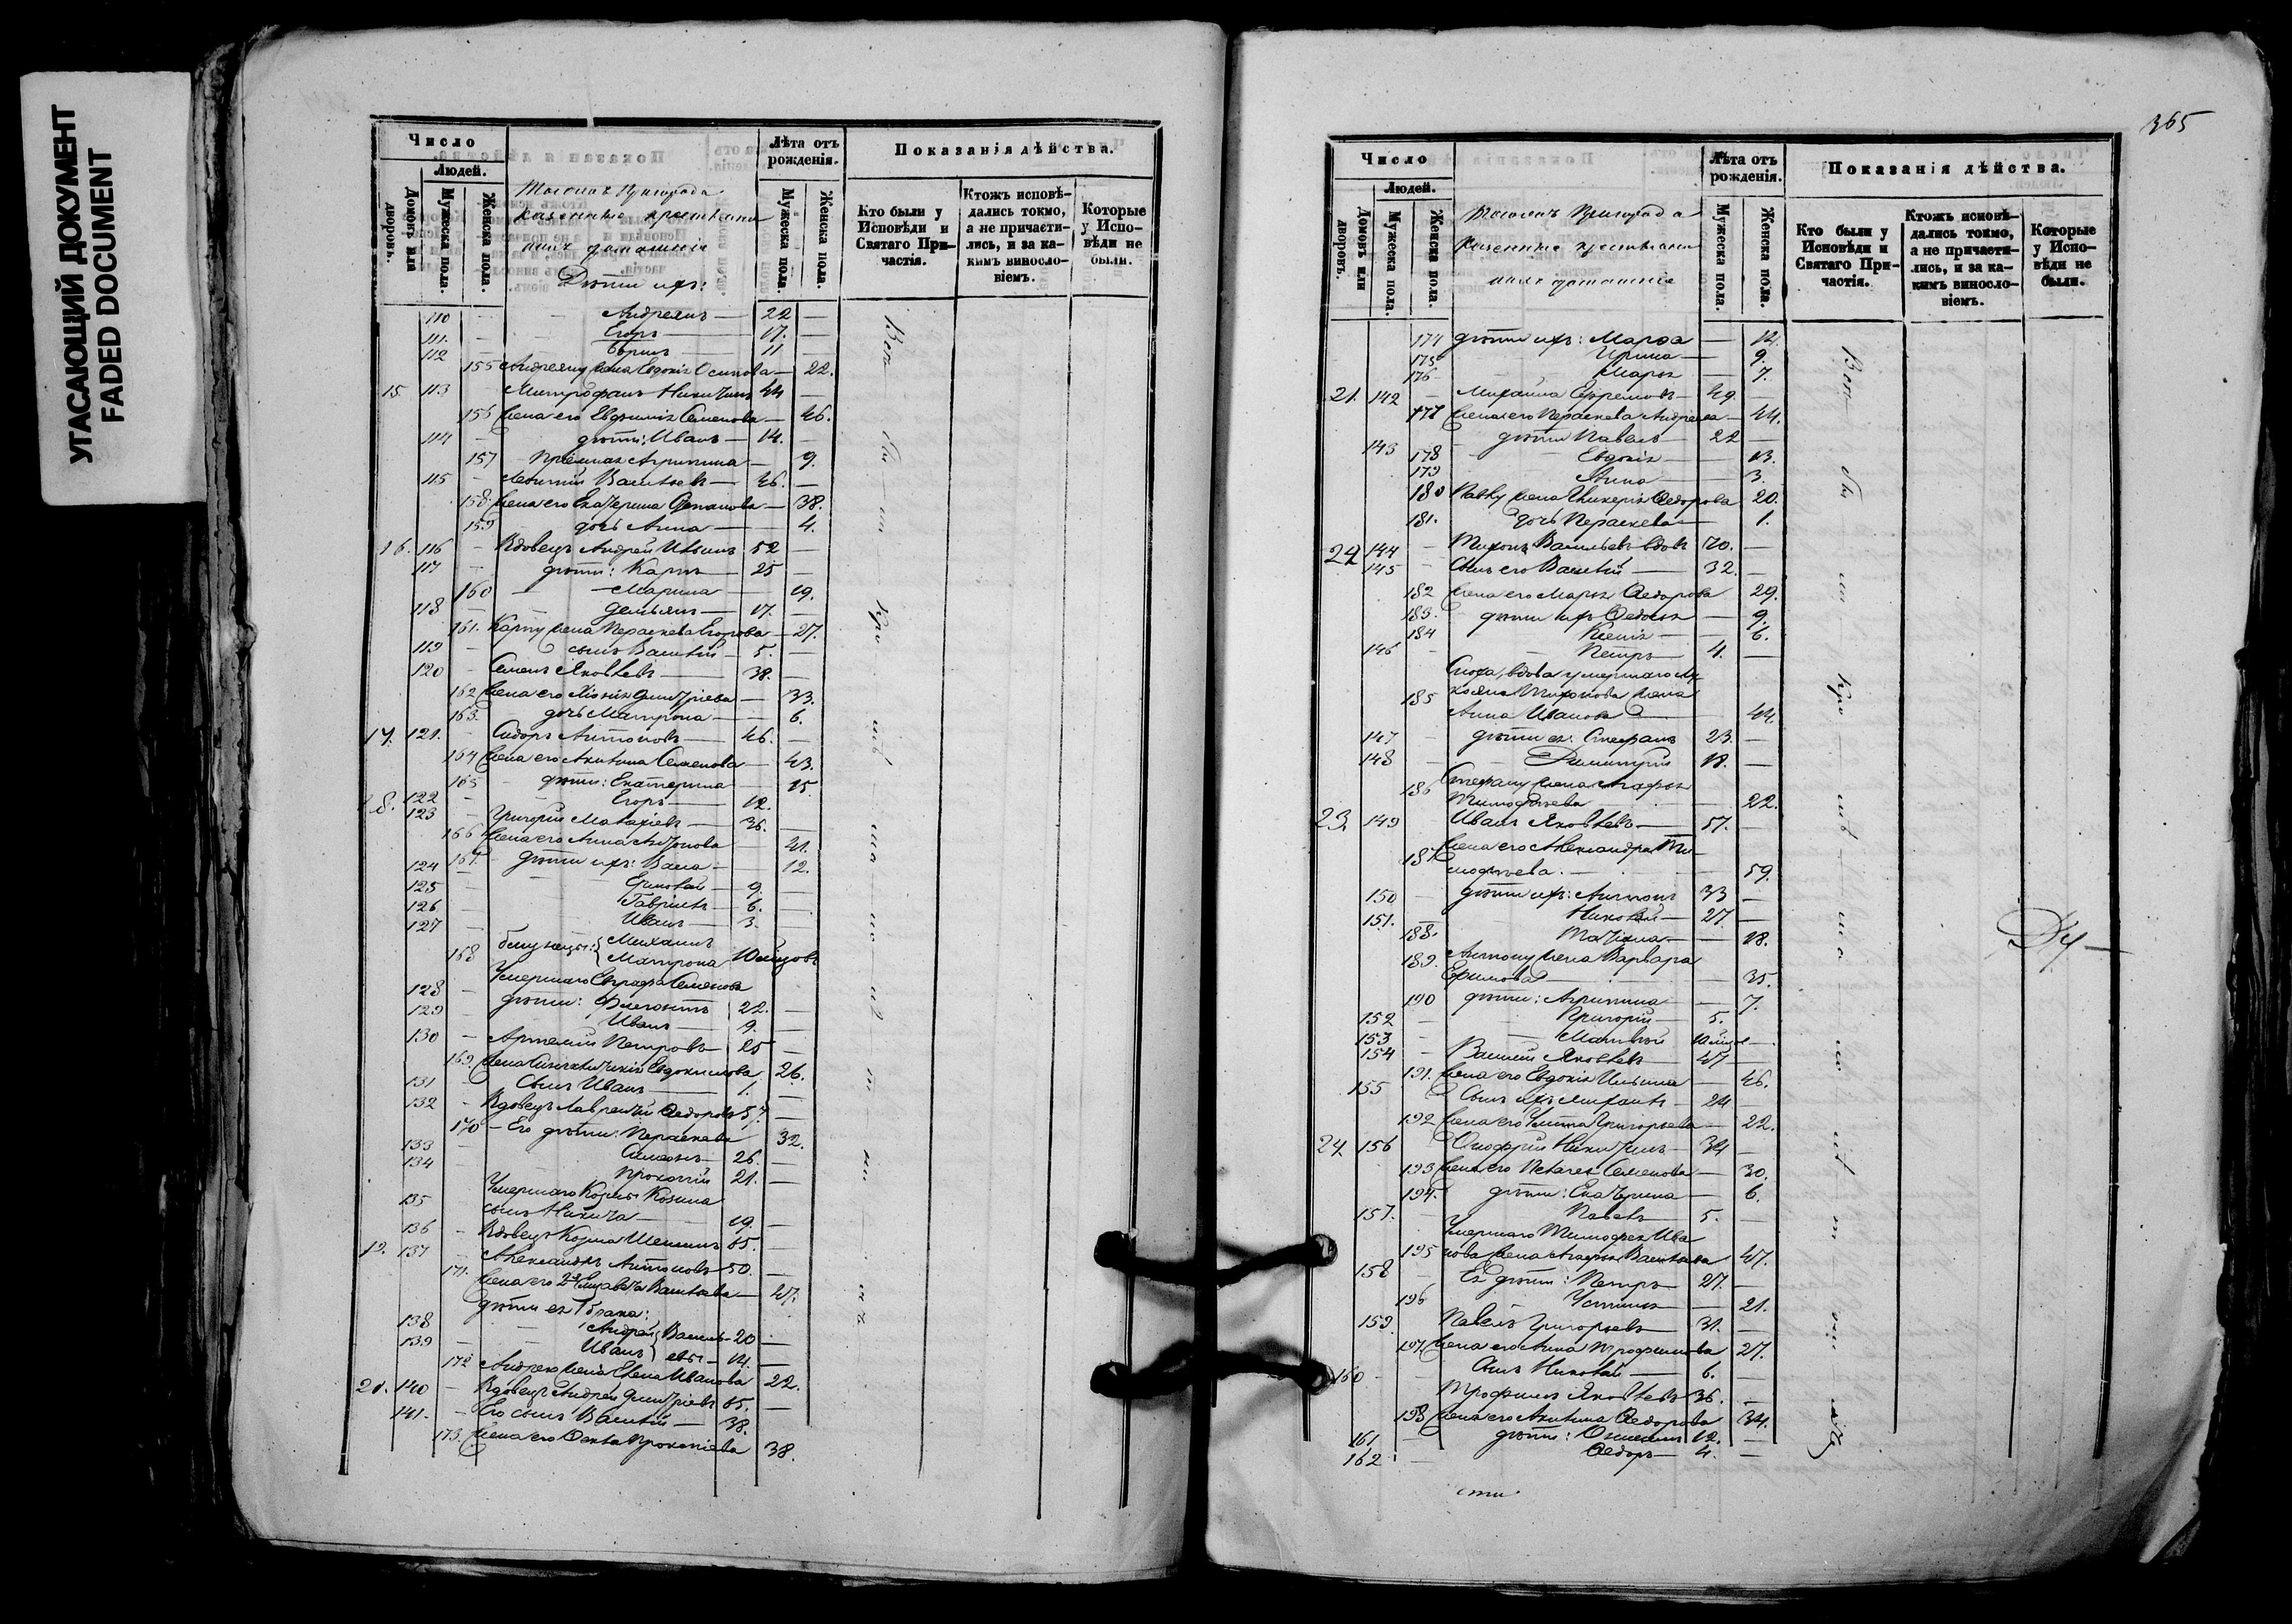 УГАСАЮЩИЙ ДОКУМЕНТ
FADED DOCUMENT
Число
Людей.
Домовъ или дворовъ.
Мужеска пола.
Женска пола.
Тогожъ Пригорода
казенные крестьяне
и ихъ домашніе
Дѣти ихъ:
Лѣта отъ рожденія.
Мужеска пола.
Женска пола.
Показанія дѣйства.
Кто были у Исповѣди и Святаго Причастія.
Ктожъ исповѣдались токмо, а не причастились, и за какимъ винословіемъ.
Которые у Исповѣди не были.
110 Андреянъ 22
111. Егоръ 17.
112 Борисъ 11
155 Андреяну жена Евдокія Осипова 22.
15 113 Митрофанъ Никитинъ 44
156 Жена его Евфимія Семенова 46.
114 дѣти: Иванъ 14.
157 Пріемная Агрипина 9.
115 Васильевъ 46.
158 Жена его Екатерина Степанова 38.
159 дочь Анна 4.
16. 116 Вдовецъ Андрей Ильинъ 52
117 дѣти: Карпъ 25
160 Марина 19.
118 Демьянъ 17.
161. Карпу жена Параскева Егорова 27.
119 сынъ Василій 5.
120 Семенъ Яковлевъ 38.
162 Жена его Хіонія Дмитріева 33.
163. дочь Матрона 6.
17. 121. Сидоръ Антоновъ 46.
164 Жена его Акилина Семенова 43.
165 дѣти: Екатерина 15.
122 Егоръ 12.
18. 123 Григорій Малахіевъ 36.
166 Жена его Анна Антонова 41.
167. дѣти ихъ: Васса 12.
124 Ермолай 9.
125 Гавріилъ 6.
126 Иванъ 3.
127 близнецы: Михаилъ
168 Матрона 10 мѣсяцовъ
Умершаго Евграфа Семенова
128 дѣти: Флегонтъ 22.
129 Иванъ 9.
130 Артемій Петровъ 25
169. Жена Синклитикія Евдокимова 26.
131 Сынъ Иванъ 1.
132 Вдовецъ Лаврентій Ѳедоровъ 57.
170 Его дѣти: Параскева 32.
133 Симеонъ 26.
134 Прокопій 21.
Умершаго Козмы Козмина
135 сынъ Никита 19.
136 Вдовецъ Козма 65.
19. 137 Александръ Антоновъ 50.
171. Жена его 2я Елизавета Васильева 47.
дѣти ея 1 брака:
138 Андрей Василь- 20
139 Иванъ евы 14.
172 Андрея жена Елена Иванова 22.
20. 140 Вдовецъ Андрей Дмитріевъ 65.
141. Его сынъ Василій 38.
173. Жена его Ѳекла Прокопіева 38.
365
Число
Людей.
Домовъ или дворовъ.
Мужеска пола.
Женска пола.
Тогожъ Пригорода
казенные крестьяне
и ихъ домашніе
Лѣта отъ рожденія.
Мужеска пола.
Женска пола.
Показанія дѣйства.
Кто были у Исповѣди и Святаго Причастія.
Ктожъ исповѣдались токмо, а не причастились, и за какимъ винословіемъ.
Которые у Исповѣди не были.
174 дѣти ихъ: Марѳа 14.
175 Ирина 9.
176 Марья 7.
21. 142 Михаила Ефремовъ 49.
177 Жена его Параскева Андреева 44.
143 дѣти Павелъ 22
178 Евдокія 13.
179 Анна 3.
180 Павлу жена Гликерія Ѳедорова 20.
181. дочь Параскева 1.
22 144 Тихонъ Васильевъ вдовъ 70.
145 Сынъ его Василій 32.
182 Жена его Марья Ѳедорова 29.
183. дѣти ихъ Ѳедосья 9.
184 Ксенія 6.
146 Петръ 4.
Сноха, вдова умершаго
185 Тихонова жена
Анна Иванова 44.
147 дѣти ея: Стефанъ 23.
148 Димитрій 18.
186 Стефану жена Агафья
Тимофѣева 22.
23. 149 Иванъ Яковлевъ 57.
187 Жена его Александра Ти-
мофѣева. 59.
150 дѣти ихъ: Антонъ 33
151. Николай 27
188. Татіана 18.
189. Антону жена Варвара
Ефимова 35.
190 дѣти: Агрипина 7.
152 Григорій 5.
153 Матвѣй 10 мѣся
154 Василій Яковлевъ 47
191. Жена его Евдокія Ильина 46.
155 Сынъ ихъ Михаилъ 24
192 Жена его Улита Григорьева 22.
24. 156 Онофрій Никитинъ 34
193 Жена его Пелагея Семенова 30.
194. дѣти: Екатерина 6.
157. Павелъ 5.
Умершаго Тимофея Ива
195 нова жена Агафья Васильева 47.
158 Ея дѣти: Петръ 27.
196 Устинья 21.
159 Павелъ Григорьевъ 31.
197 Жена его Анна Трофимова 27.
160 Сынъ Николай 6.
Трофимъ Яковлевъ 36.
198 Жена его Акилина Ѳедорова 34.
161 дѣти: Онисимъ 12.
162 Ѳедоръ 4.